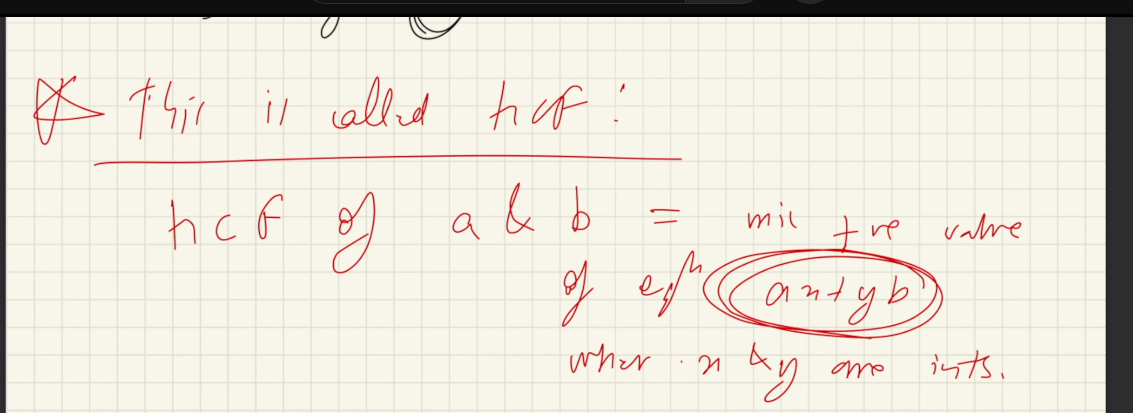 This is called hcf:
hcf of a & b = min +ve value
of eqn ax+yb
where x & y are ints.